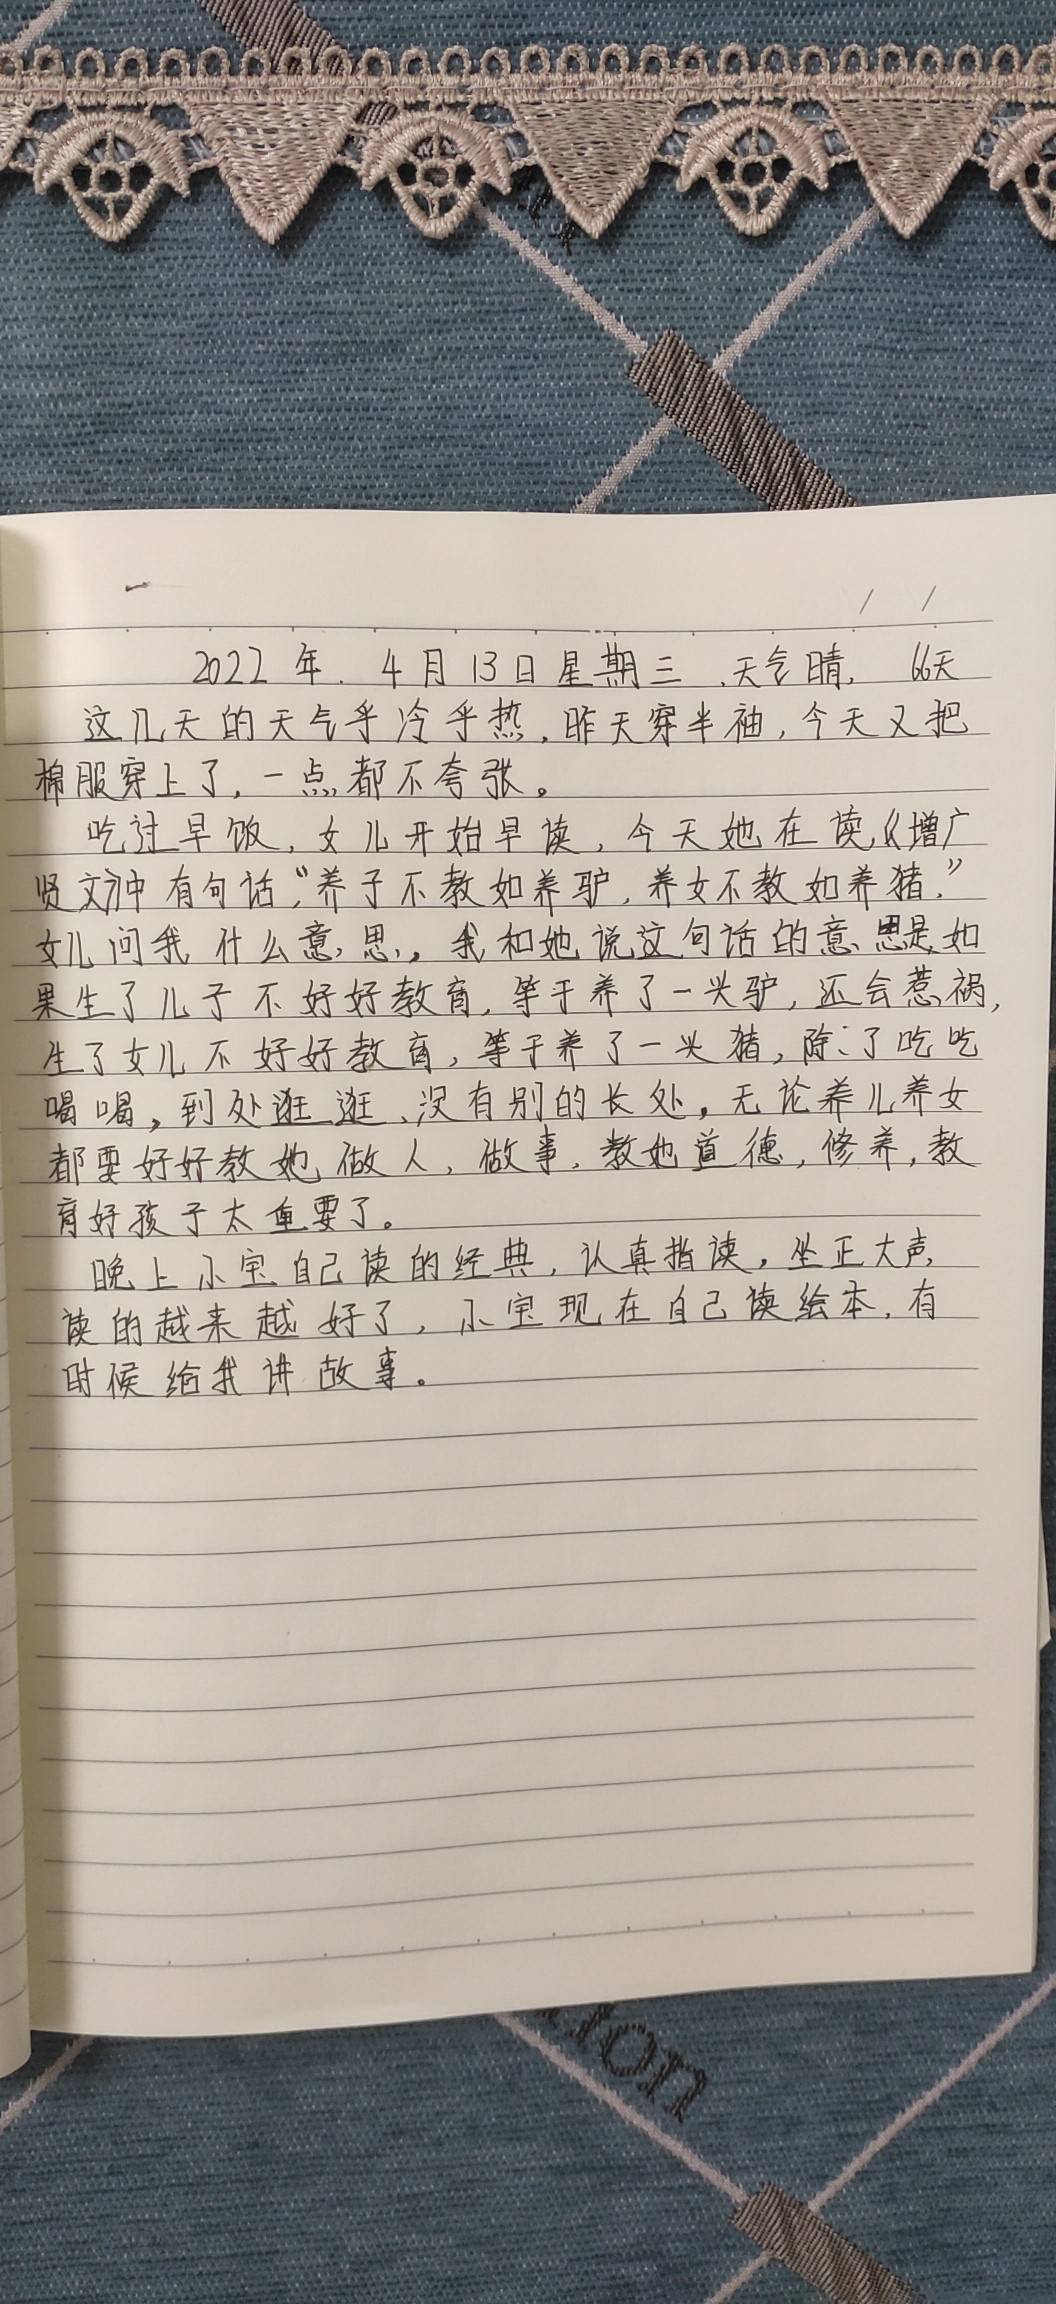 2022年.4月13日星期三.天气晴.66天
这几天的天气乎冷乎热.昨天穿半袖,今天又把
棉服穿上了,一点都不夸张。
吃过早饭,女儿开始早读,今天她在读《增广
贤文》中有句话,“养子不教如养驴,养女不教如养猪.”
女儿问我什么意思,。我和她说这句话的意思是如
果生了儿子不好好教育,等于养了一头驴,还会惹祸,
生了女儿不好好教育,等于养了一头猪,除了吃吃
喝喝,到处逛逛、没有别的长处,无论养儿养女
都要好好教她做人,做事,教她道德,修养,教
育好孩子太重要了。
晚上小宝自己读的经典,认真指读,坐正大声,
读的越来越好了,小宝现在自己读绘本,有
时候给我讲故事。